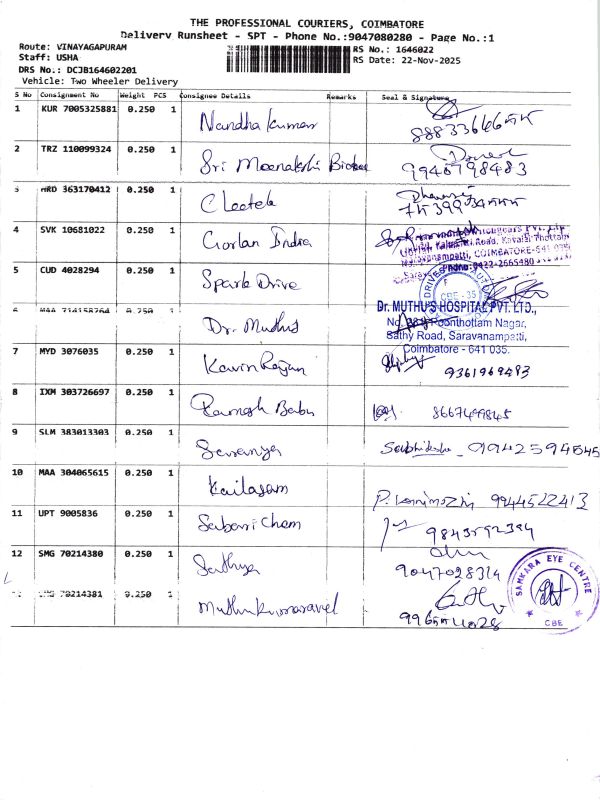 THE PROFESSIONAL COURIERS, COIMBATORE
Delivery Runsheet - SPT - Phone No.:9047080280 - Page No.:1
Route: VINAYAGAPURAM RS No.: 1646022
Staff: USHA RS Date: 22-Nov-2025
DRS No.: DCJB164602201
Vehicle: Two Wheeler Delivery
S No Consignment No Weight PCS Consignee Details Remarks Seal & Signature
1 KUR 7005325881 0.250 1 Nandha Kumar
2 TRZ 110099324 0.250 1 Sri Meenakshi 9946798483
3 HRD 363170412 0.250 1
4 SVK 10681022 0.250 1 Gorlan India
Saravanampatti, COIMBATORE-641 035
Phone: 0422-2665480
5 CUD 4028294 0.250 1 Spark Drive
CBE - 35
6 MAA 714158764 0.250 1 Dr. Muthus
Dr. MUTHU'S HOSPITAL PVT. LTD.,
Poonthottam Nagar,
Sathy Road, Saravanampatti,
Coimbatore - 641 035.
7 MYD 3076035 0.250 1 Kavin Rajan 9361969483
8 IXM 303726697 0.250 1 Ramesh Babu 8667499845
9 SLM 383013303 0.250 1 Saranya 9942594545
10 MAA 304065615 0.250 1 Kailasam 9944522413
11 UPT 9005836 0.250 1 Sabari Cham 9843592394
12 SMG 70214380 0.250 1 Sathya 9047028314
SANKARA EYE CENTRE
CBE
13 SMG 70214381 0.250 1 Muthukumaravel